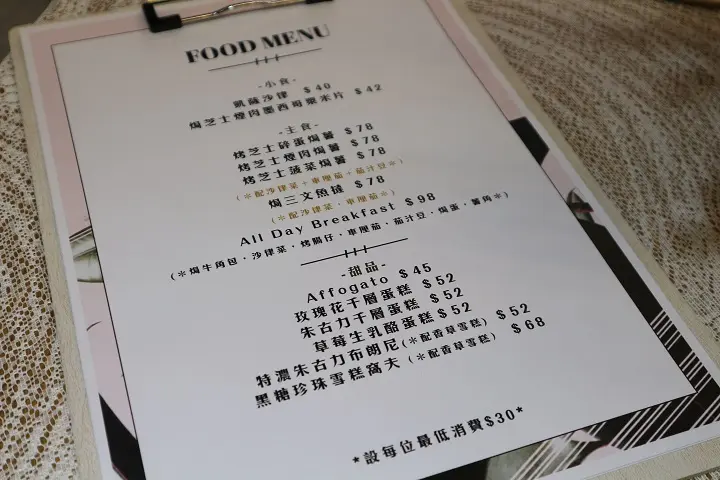 FOOD MENU
-小食-
凱薩沙律 $40
焗芝士煙肉墨西哥粟米片 $42
-主食-
烤芝士碎蛋焗薯 $78
烤芝士煙肉焗薯 $78
烤芝士菠菜焗薯 $78
(*配沙律菜+車厘茄+茄汁豆*)
焗三文魚撻 $78
(*配沙律菜·車厘茄*)
All Day Breakfast $98
(*焗牛角包·沙律菜·烤腸仔·車厘茄·茄汁豆·焗蛋·薯角*)
-甜品-
Affogato $45
玫瑰花千層蛋糕 $52
朱古力千層蛋糕 $52
草莓生乳酪蛋糕 $52
特濃朱古力布朗尼(*配香草雪糕) $52
黑糖珍珠雪糕窩夫(*配香草雪糕) $68
*設每位最低消費$30*